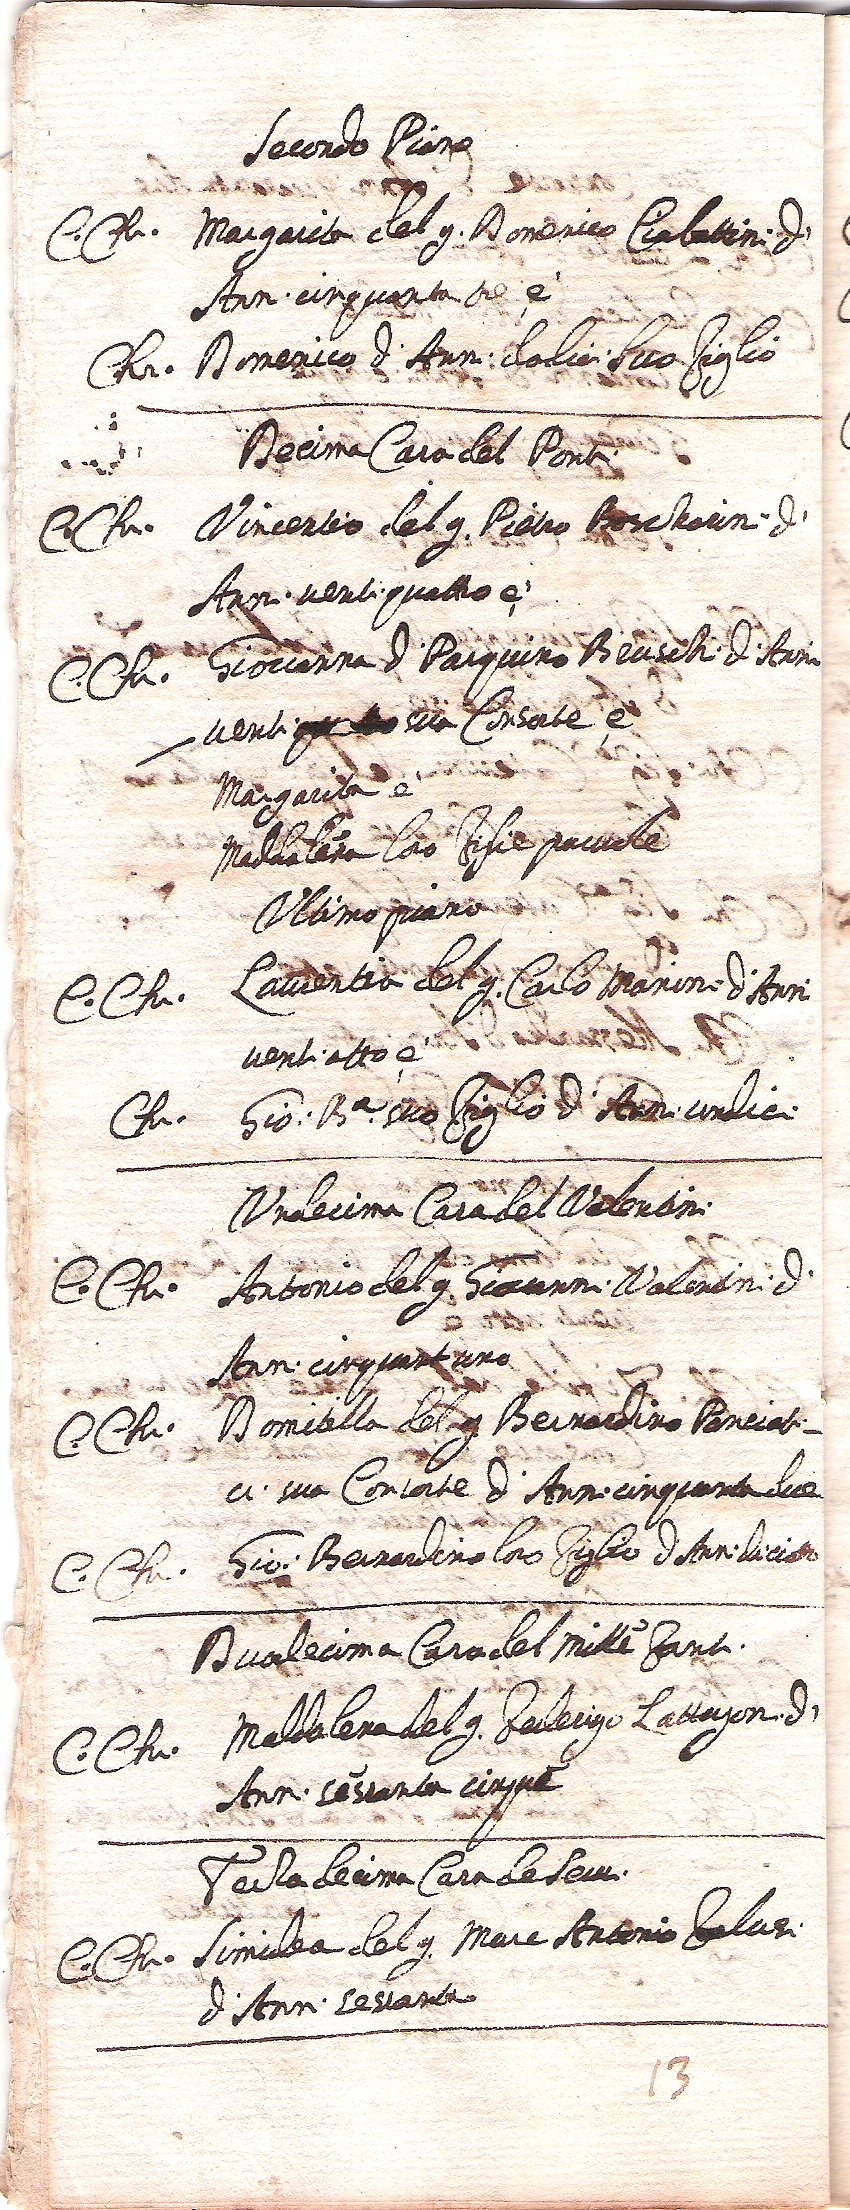 Secondo Piano
C. Chr. Margarita del q. Domenico Ciabattini d'
Anni cinquanta tre, e'
Chr. Domenico d' Anni dodici suo figlio
Decima Casa del Ponti
C. Chr. Vincentio del q. Pietro Boscharini d'
Anni venti quattro e'
C. Chr. Giovanna d Pasquino Bruschi d' Anni
venti sua Consorte e'
Margarita e'
Maddalena loro figlie piccole
Ultimo piano
C. Chr. Laurentia del q. Carlo Marini d'Anni
venti otto e'
Chr. Gio: Bª suo figlio d' Anni undici
Undecima Casa del Valentini
C. Chr. Antonio del q. Giovanni Valentini d'
Anni cinquant uno
C. Chr. Domitilla del q Bernardino Panciati-
ci sua Consorte d' Anni cinquanta due
C. Chr. Gio: Bernardino loro figlio d Anni diciotto
Duodecima Casa del Mille fanti
C. Chr. Maddalena del q. Federigo d'
Anni sessanta cinque
Terza decima Casa de Servi
C. Chr. del q. Marc Antonio
d' Anni sessanta
13